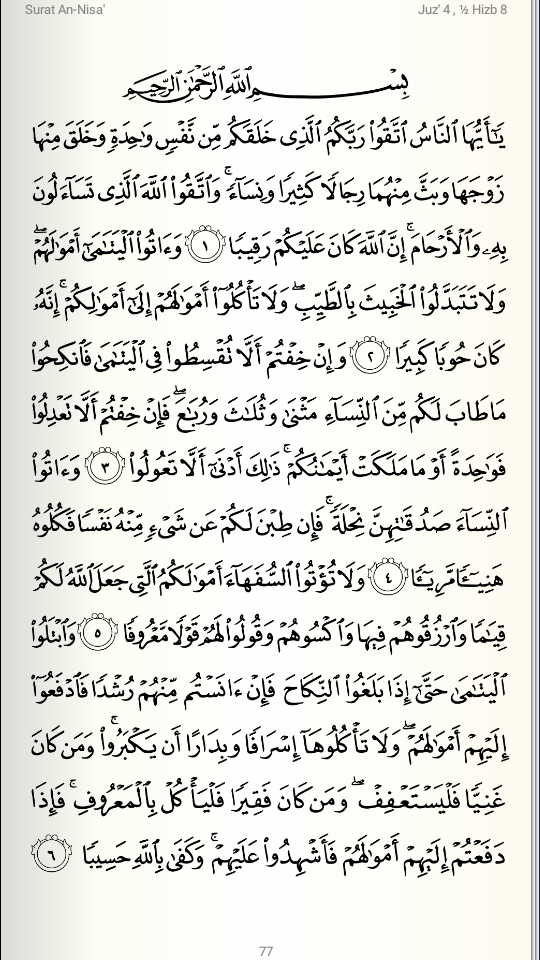 Surat An-Nisa' Juz' 4 , ½ Hizb 8
بِسْمِ ٱللَّهِ ٱلرَّحْمَٰنِ ٱلرَّحِيمِ
يَٰٓأَيُّهَا ٱلنَّاسُ ٱتَّقُوا۟ رَبَّكُمُ ٱلَّذِى خَلَقَكُم مِّن نَّفْسٍ وَٰحِدَةٍ وَخَلَقَ مِنْهَا
زَوْجَهَا وَبَثَّ مِنْهُمَا رِجَالًا كَثِيرًا وَنِسَآءً ۚ وَٱتَّقُوا۟ ٱللَّهَ ٱلَّذِى تَسَآءَلُونَ
بِهِۦ وَٱلْأَرْحَامَ ۚ إِنَّ ٱللَّهَ كَانَ عَلَيْكُمْ رَقِيبًا ١ وَءَاتُوا۟ ٱلْيَتَٰمَىٰٓ أَمْوَٰلَهُمْ ۖ
وَلَا تَتَبَدَّلُوا۟ ٱلْخَبِيثَ بِٱلطَّيِّبِ ۖ وَلَا تَأْكُلُوٓا۟ أَمْوَٰلَهُمْ إِلَىٰٓ أَمْوَٰلِكُمْ ۚ إِنَّهُۥ
كَانَ حُوبًا كَبِيرًا ٢ وَإِنْ خِفْتُمْ أَلَّا تُقْسِطُوا۟ فِى ٱلْيَتَٰمَىٰ فَٱنكِحُوا۟
مَا طَابَ لَكُم مِّنَ ٱلنِّسَآءِ مَثْنَىٰ وَثُلَٰثَ وَرُبَٰعَ ۖ فَإِنْ خِفْتُمْ أَلَّا تَعْدِلُوا۟
فَوَٰحِدَةً أَوْ مَا مَلَكَتْ أَيْمَٰنُكُمْ ۚ ذَٰلِكَ أَدْنَىٰٓ أَلَّا تَعُولُوا۟ ٣ وَءَاتُوا۟
ٱلنِّسَآءَ صَدُقَٰتِهِنَّ نِحْلَةً ۚ فَإِن طِبْنَ لَكُمْ عَن شَىْءٍ مِّنْهُ نَفْسًا فَكُلُوهُ
هَنِيٓـًٔا مَّرِيٓـًٔا ٤ وَلَا تُؤْتُوا۟ ٱلسُّفَهَآءَ أَمْوَٰلَكُمُ ٱلَّتِى جَعَلَ ٱللَّهُ لَكُمْ
قِيَٰمًا وَٱرْزُقُوهُمْ فِيهَا وَٱكْسُوهُمْ وَقُولُوا۟ لَهُمْ قَوْلًا مَّعْرُوفًا ٥ وَٱبْتَلُوا۟
ٱلْيَتَٰمَىٰ حَتَّىٰٓ إِذَا بَلَغُوا۟ ٱلنِّكَاحَ فَإِنْ ءَانَسْتُم مِّنْهُمْ رُشْدًا فَٱدْفَعُوٓا۟
إِلَيْهِمْ أَمْوَٰلَهُمْ ۖ وَلَا تَأْكُلُوهَآ إِسْرَافًا وَبِدَارًا أَن يَكْبَرُوا۟ ۚ وَمَن كَانَ
غَنِيًّا فَلْيَسْتَعْفِفْ ۖ وَمَن كَانَ فَقِيرًا فَلْيَأْكُلْ بِٱلْمَعْرُوفِ ۚ فَإِذَا
دَفَعْتُمْ إِلَيْهِمْ أَمْوَٰلَهُمْ فَأَشْهِدُوا۟ عَلَيْهِمْ ۚ وَكَفَىٰ بِٱللَّهِ حَسِيبًا ٦
77